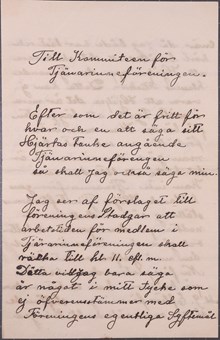 Till Kommiteen för
Tjänarinneföreningen.
Efter som det är fritt för
hvar och en att säga sitt
Hjärtas tanke angående
Tjänarinneförengen
så skall Jag också säga min.
Jag ser af förslaget till
föreningens Stadgar att
arbetstiden för medlem i
Tjänarinneföreningen skall
räcka till kl. 11. eft. m.
Detta vill jag bara säga
är något i mitt tycke som
ej öfverensstämmer med
Föreningens egentliga Syftemål